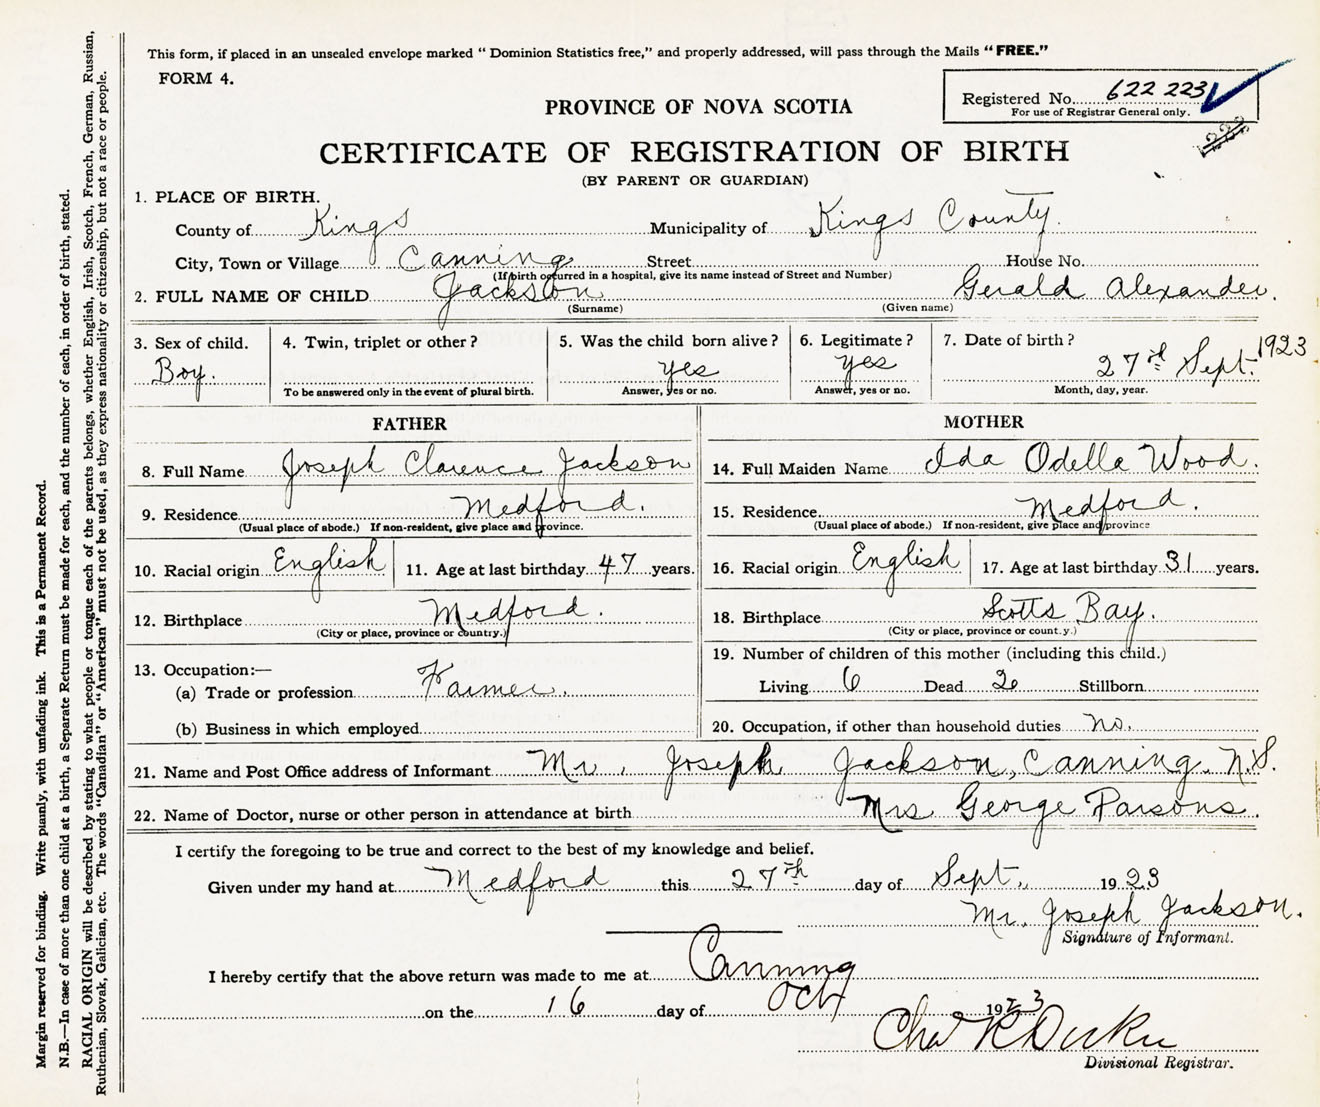 This form, if placed in an unsealed envelope marked “ Dominion Statistics free,” and properly addressed, will pass through the Mails “ FREE.”
FORM 4.
Registered No. 622 223
For use of Registrar General only.
PROVINCE OF NOVA SCOTIA
CERTIFICATE OF REGISTRATION OF BIRTH
(BY PARENT OR GUARDIAN)
1. PLACE OF BIRTH.
County of Kings Municipality of Kings County.
City, Town or Village Canning Street House No.
(If birth occurred in a hospital, give its name instead of Street and Number)
2. FULL NAME OF CHILD Jackson Gerald Alexander.
(Surname) (Given name)
3. Sex of child. Boy.
4. Twin, triplet or other?
To be answered only in the event of plural birth.
5. Was the child born alive? yes
Answer, yes or no.
6. Legitimate? yes
Answer, yes or no.
7. Date of birth? 27th Sept. 1923
Month, day, year.
FATHER
8. Full Name Joseph Clarence Jackson
9. Residence Medford.
(Usual place of abode.) If non-resident, give place and province.
10. Racial origin English 11. Age at last birthday 47 years.
12. Birthplace Medford.
(City or place, province or country.)
13. Occupation:—
(a) Trade or profession Farmer.
(b) Business in which employed
MOTHER
14. Full Maiden Name Ida Odella Wood.
15. Residence Medford.
(Usual place of abode.) If non-resident, give place and province
16. Racial origin English 17. Age at last birthday 31 years.
18. Birthplace Scotts Bay.
(City or place, province or country.)
19. Number of children of this mother (including this child.)
Living 6 Dead 2 Stillborn
20. Occupation, if other than household duties no.
21. Name and Post Office address of Informant Mr. Joseph Jackson, Canning. N.S.
22. Name of Doctor, nurse or other person in attendance at birth Mrs George Parsons.
I certify the foregoing to be true and correct to the best of my knowledge and belief.
Given under my hand at Medford this 27th day of Sept. 1923
Mr. Joseph Jackson.
Signature of Informant.
I hereby certify that the above return was made to me at Canning
on the 16 day of Oct 1923
Chas R
Divisional Registrar.
Margin reserved for binding. Write plainly, with unfading ink. This is a Permanent Record.
N.B.—In case of more than one child at a birth, a Separate Return must be made for each, and the number of each, in order of birth, stated.
RACIAL ORIGIN will be described by stating to what people or tongue each of the parents belongs, whether English, Irish, Scotch, French, German, Russian,
Ruthenian, Slovak, Galician, etc. The words “Canadian” or “American” must not be used, as they express nationality or citizenship, but not a race or people.